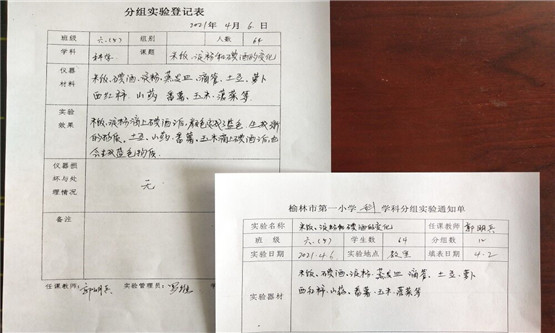 分组实验登记表
2021年 4月 6日
班级 六.(7) 组别 人数 64
学科 科学 课题 米饭、淀粉和碘酒的变化
仪器材料
米饭、碘酒、淀粉、蒸发皿、滴管、土豆、萝卜
西红柿 山药 番薯、玉米、菠菜等
实验效果
米饭、淀粉滴上碘酒后,颜色变成了蓝色 生成新
的物质、土豆、山药、番薯、玉米滴上碘酒后,也
会生成蓝色物质.
仪器损坏与处理情况
无
备注
任课教师: 郭明兵 实验管理员:
榆林市第一小学 科 学科分组实验通知单
实验名称 米饭、淀粉和碘酒的变化 任课教师 郭明兵
班 级 六.(7) 学生数 64 分组数 12
实验日期 2021.4.6 实验地点 教室 填表日期 4.2
实验器材
米饭、碘酒、淀粉、蒸发皿 滴管、土豆、萝卜
西红柿、山药、番薯、玉米、菠菜等